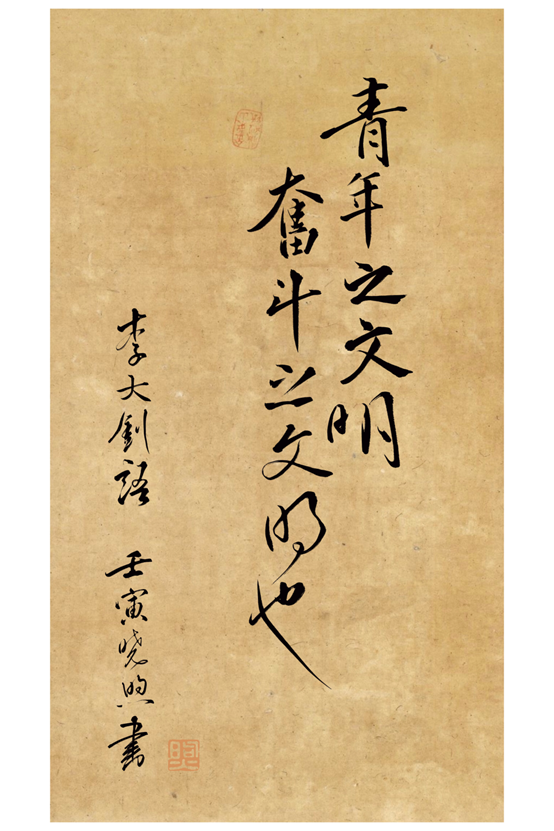 青年之文明
奮斗之文明也
李大釗語 壬寅曉煦書